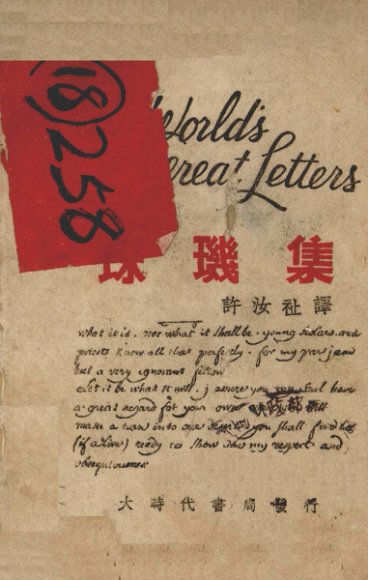 ⑱258
World's
Great Letters
珠璣集
許汝祉譯
what it is. nor what it shall be. young sisters and
priests know all that perfectly. for my par j am
but a very ignorant fellow
Let it be what it will. j assure you
a great regard for your own will
make a turn into our you shall find
(if alive) ready to show my respect and
obsequiousness
大時代書局發行